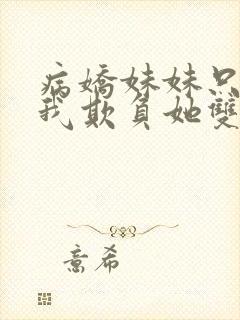 病嬌妹妹只
我欺負她雙
意希